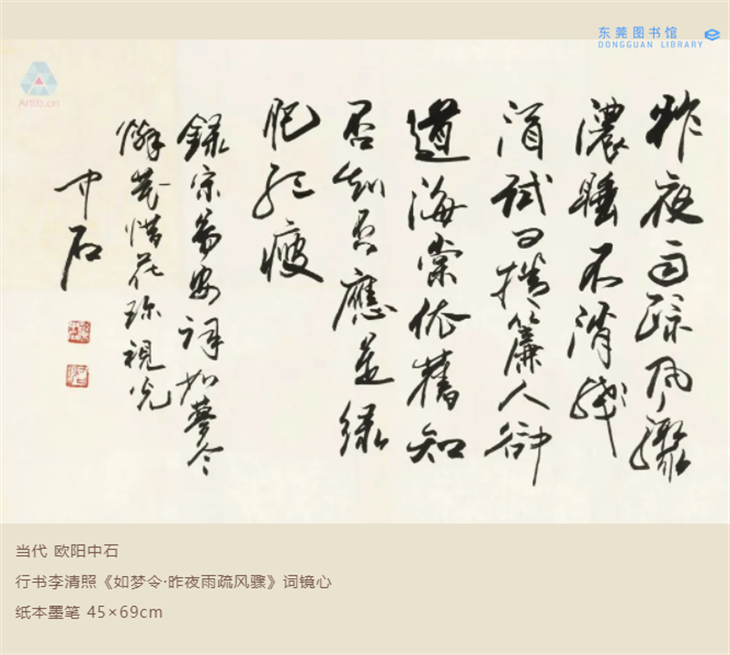 东莞图书馆
DONGGUAN LIBRARY
Artlib.cn
昨夜雨踈風驟
濃睡不消殘
酒試问捲簾人卻
道海棠依舊知
否知否應是緑
肥紅瘦
録宋易安詞如夢令
惜花珍視光
中石
当代 欧阳中石
行书李清照《如梦令·昨夜雨疏风骤》词镜心
纸本墨笔 45×69cm